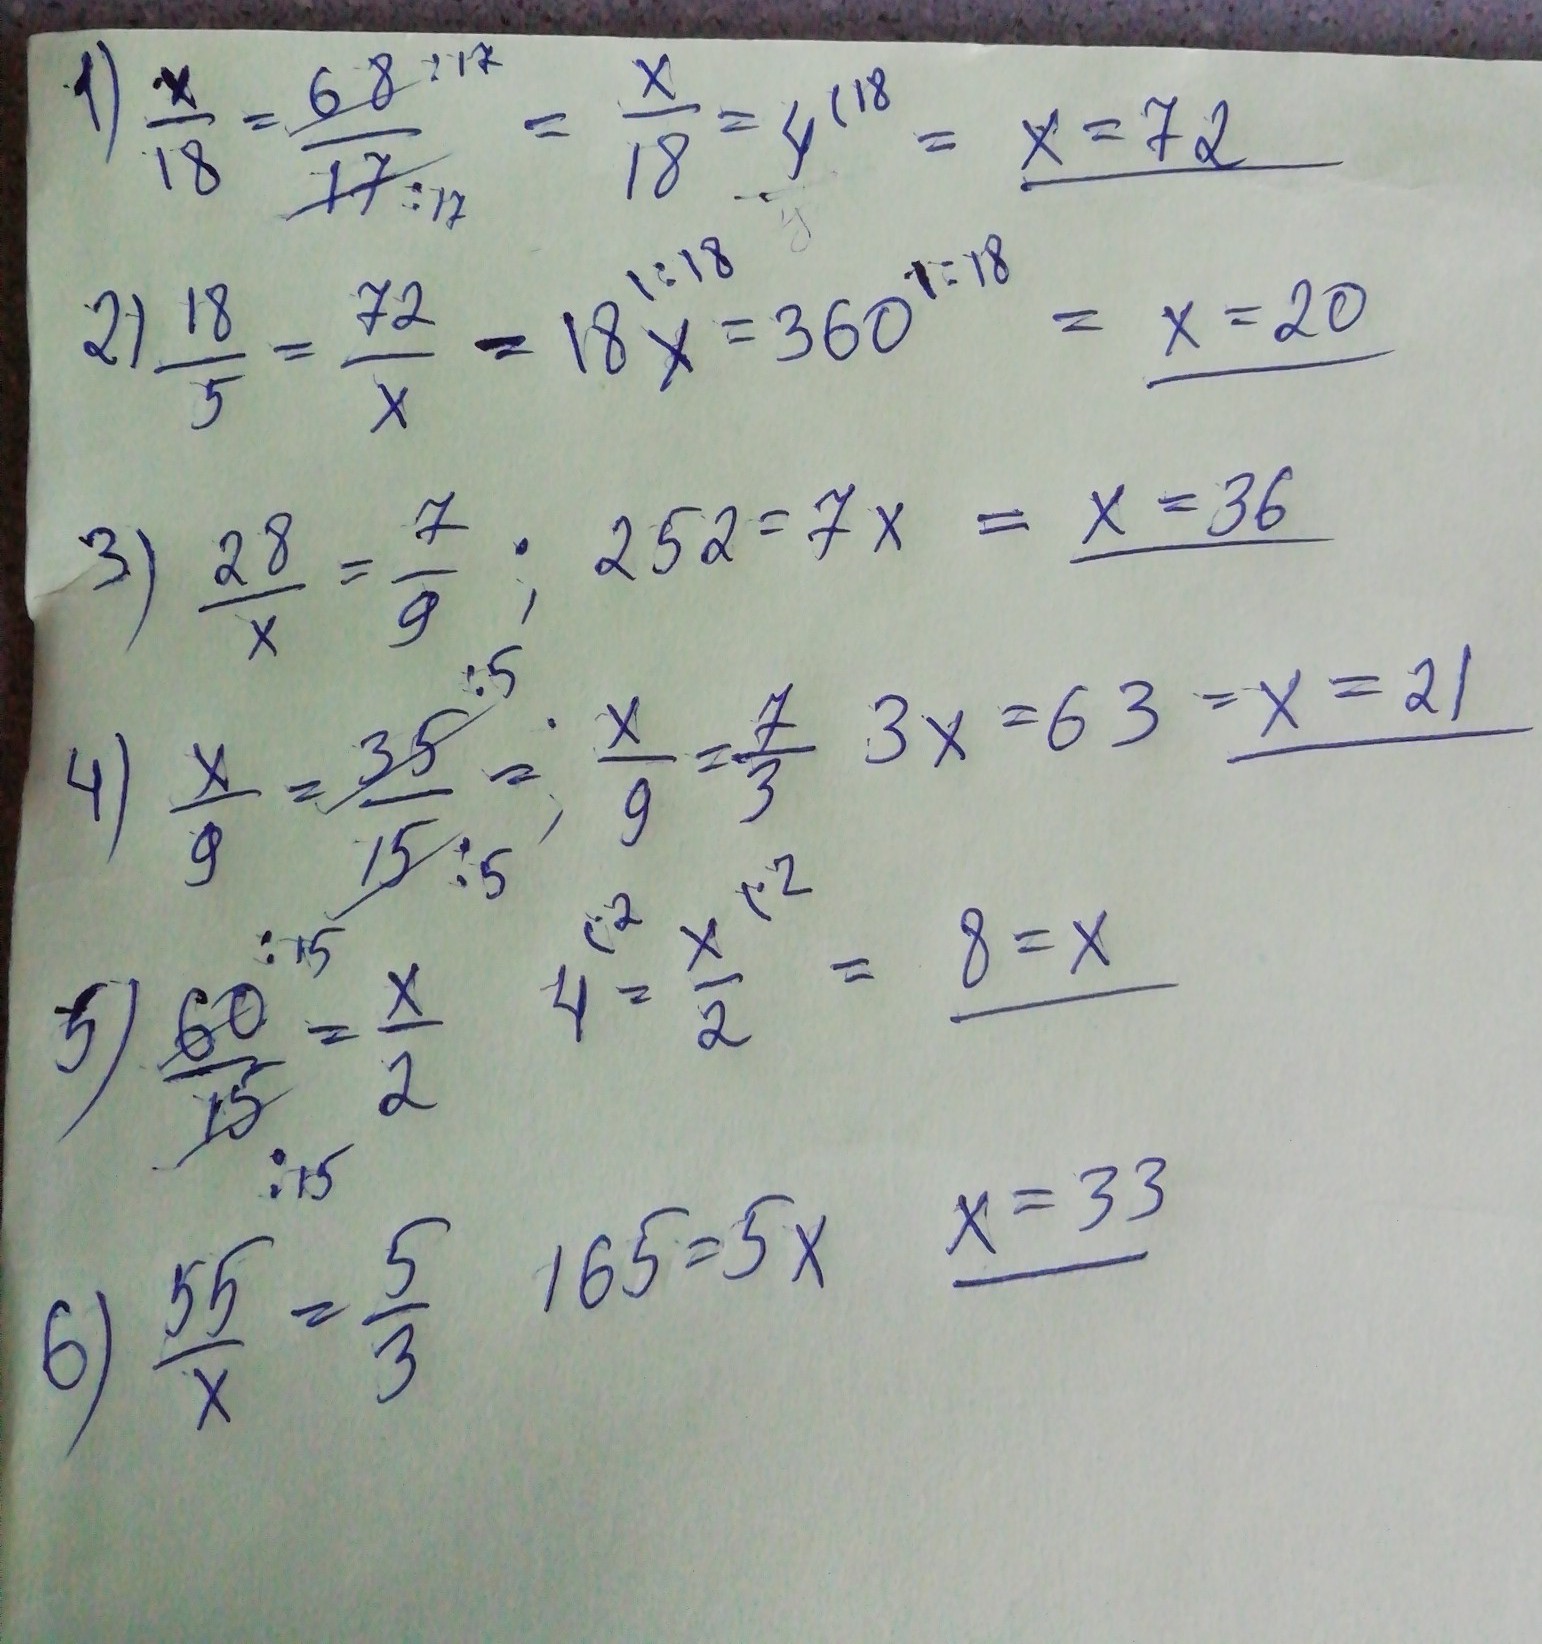 1) x/18 = 68:17/17:17 = x/18 = 4 (18 = x = 72
2) 18/5 = 72/x = 18x (:18 = 360 (:18 = x = 20
3) 28/x = 7/9 ; 252 = 7x = x = 36
4) x/9 = 35:5/15:5 = ; x/9 = 7/3 3x = 63 = x = 21
5) 60:15/15:15 = x/2 4 (·2 = x/2 (·2 = 8 = x
6) 55/x = 5/3 165 = 5x x = 33